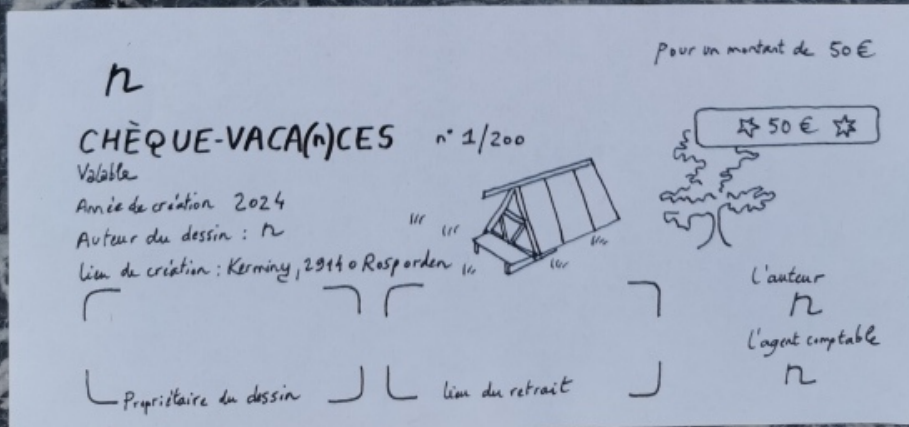 Pour un montant de 50 €
n
CHÈQUE-VACA(n)CES n° 1/200
☆ 50 € ☆
Valable
Année de création 2024
Auteur du dessin : n
Lieu de création : Kerminy, 29140 Rosporden
L'auteur
n
L'agent comptable
n
Propriétaire du dessin
Lieu du retrait